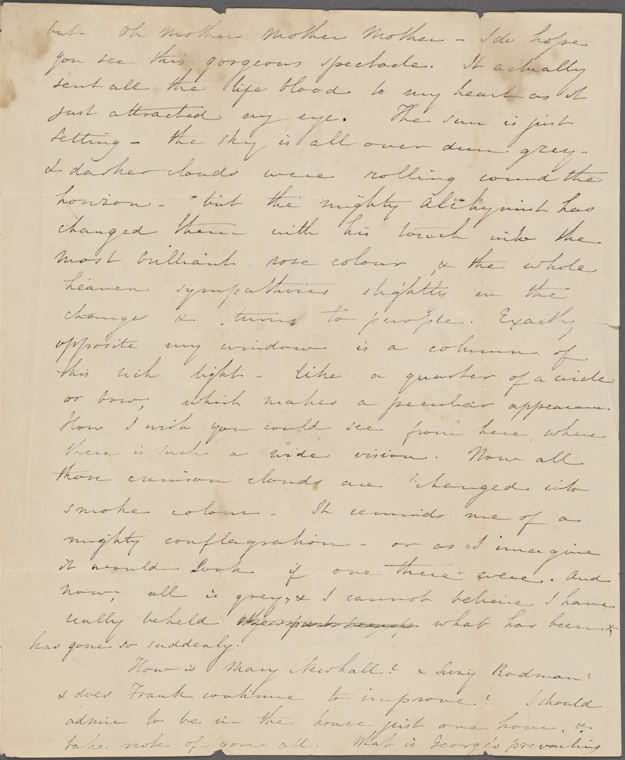 but Oh mother mother mother - I do hope
you see this gorgeous spectacle. It actually
sent all the life blood to my heart as it
just attracted my eye. The sun is just
setting - the sky is all over dun grey -
& darker clouds were rolling round the
horizon - but the mighty Alchymist has
changed them with his touch into the
most brilliant rose colour, & the whole
heaven sympathises slightly in the
change & turns to purple. Exactly
opposite my window is a column of
this rich light - like a quarter of a circle
or bow, which makes a peculiar appearance.
How I wish you could see from here where
there is such a wide vision. Now all
those crimson clouds are changed into
smoke colour. It reminds me of a
mighty conflagration - or as I imagine
it would look if one there were. And
now all is grey, & I cannot believe I have
really beheld what has been &
has gone so suddenly.
How is Mary Newhall? & Susy Rodman?
& does Frank continue to improve? I should
admire to be in the house just one hour, &
take note of you all. What is George's prevailing